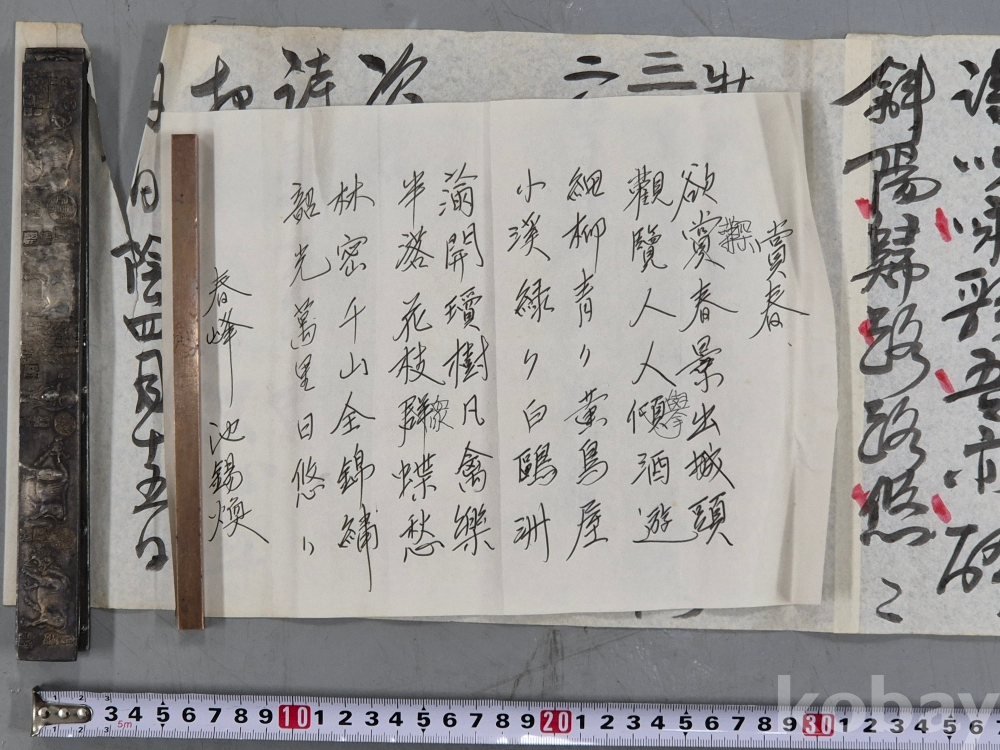 斜陽歸路路悠〻
賞春
欲賞春景出城頭
觀覽人人傾酒遊
細柳青〃黃鳥屋
小溪緑〃白鷗洲
開瓊樹凡禽樂
半落花枝群蝶愁
林密千山全錦繡
韶光萬里日悠〃
春峰 池錫煥
三
二
次
詩
日陰四月十五日
1 2 3 4 5 6 7 8 9 10 1 2 3 4 5 6 7 8 9 20 1 2 3 4 5 6 7 8 9 30 1 2 3 4 5 6
5m
kobay